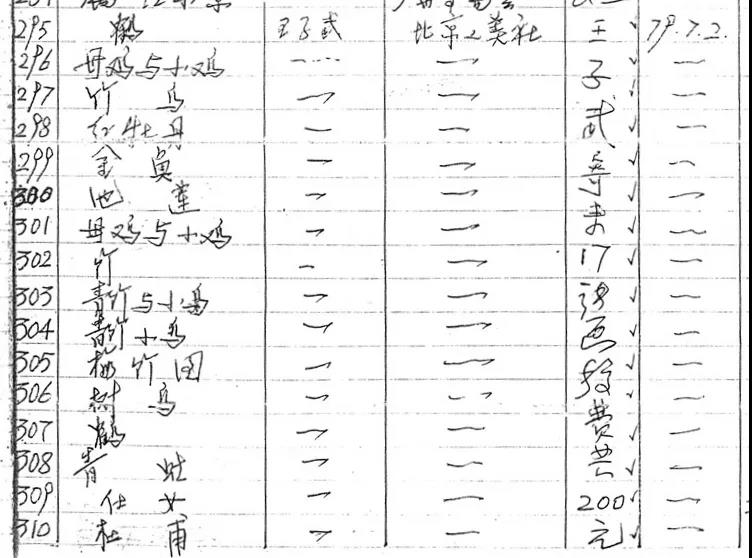 295 鹤 王子武 北京工美社 王 ✓ 79.7.2.
296 母鸡与小鸡 — — 子 ✓ —
297 竹 鸟 — — ✓ —
298 红牡丹 — — 武 ✓ —
299 金 鱼 — — 寄 ✓ —
300 池 莲 — — ✓ —
301 母鸡与小鸡 — — 来 ✓ —
302 竹 — — 17 ✓ —
303 青竹与小鸟 — — 张 ✓ —
304 青竹小鸟 — — 画 ✓ —
305 竹图 — — ✓ —
306 鸟 — — ✓ —
307 鹤 — — 费 ✓ —
308 青 — — 共 ✓ —
309 仕 女 — — 200 ✓ —
310 杜 甫 — — 元 ✓ —